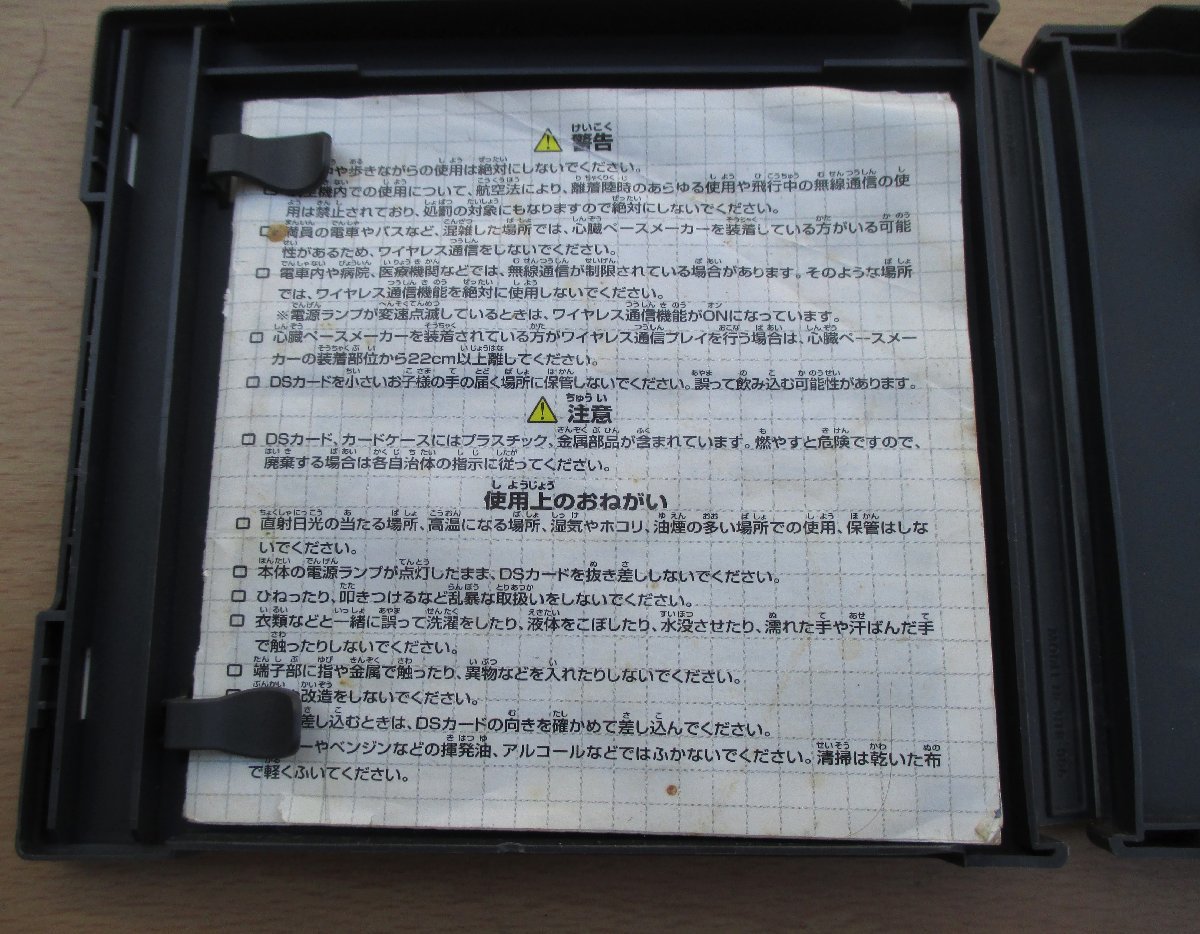 警告
や歩きながらの使用は絶対にしないでください。
機内での使用について、航空法により、離着陸時のあらゆる使用や飛行中の無線通信の使
用は禁止されており、処罰の対象にもなりますので絶対にしないでください。
□ 満員の電車やバスなど、混雑した場所では、心臓ペースメーカーを装着している方がいる可能
性があるため、ワイヤレス通信をしないでください。
□ 電車内や病院、医療機関などでは、無線通信が制限されている場合があります。そのような場所
では、ワイヤレス通信機能を絶対に使用しないでください。
※電源ランプが変速点滅しているときは、ワイヤレス通信機能がONになっています。
□ 心臓ペースメーカーを装着されている方がワイヤレス通信プレイを行う場合は、心臓ペースメー
カーの装着部位から22cm以上離してください。
□ DSカードを小さいお子様の手の届く場所に保管しないでください。誤って飲み込む可能性があります。
注意
□ DSカード、カードケースにはプラスチック、金属部品が含まれています。燃やすと危険ですので、
廃棄する場合は各自治体の指示に従ってください。
使用上のおねがい
□ 直射日光の当たる場所、高温になる場所、湿気やホコリ、油煙の多い場所での使用、保管はしな
いでください。
□ 本体の電源ランプが点灯したまま、DSカードを抜き差ししないでください。
□ ひねったり、叩きつけるなど乱暴な取扱いをしないでください。
□ 衣類などと一緒に誤って洗濯をしたり、液体をこぼしたり、水没させたり、濡れた手や汗ばんだ手
で触ったりしないでください。
□ 端子部に指や金属で触ったり、異物などを入れたりしないでください。
改造をしないでください。
差し込むときは、DSカードの向きを確かめて差し込んでください。
ーやベンジンなどの揮発油、アルコールなどではふかないでください。清掃は乾いた布
で軽くふいてください。